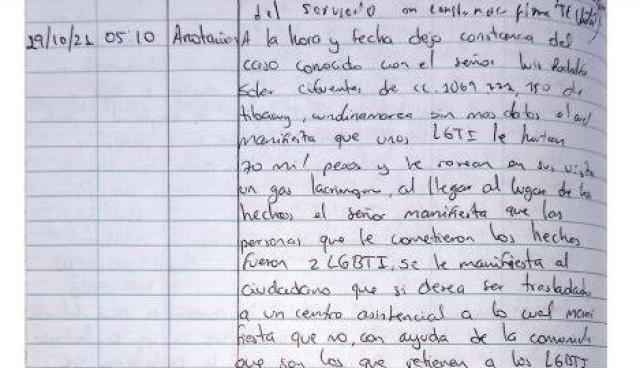 del servicio en constancia firma TE
29/10/21 05:10 Anotacion A la hora y fecha dejo constancia del
caso conocido con el señor Luis
Soler Cifuentes de cc. 1069 222, 150 de
, cundinamarca sin mas datos el cual
manifiesta que unos LGTI le hurtan
70 mil pesos y le rocean en su vista
un gas lacrimogeno, al llegar al lugar de los
hechos el señor manifiesta que las
personas que le cometieron los hechos
fueron 2 LGBTI, se le manifiesta al
ciudadano que si desea ser trasladado
a un centro asistencial a lo cual mani
fiesta que no, con ayuda de la comunid
que son los que retienen a los LGBTI